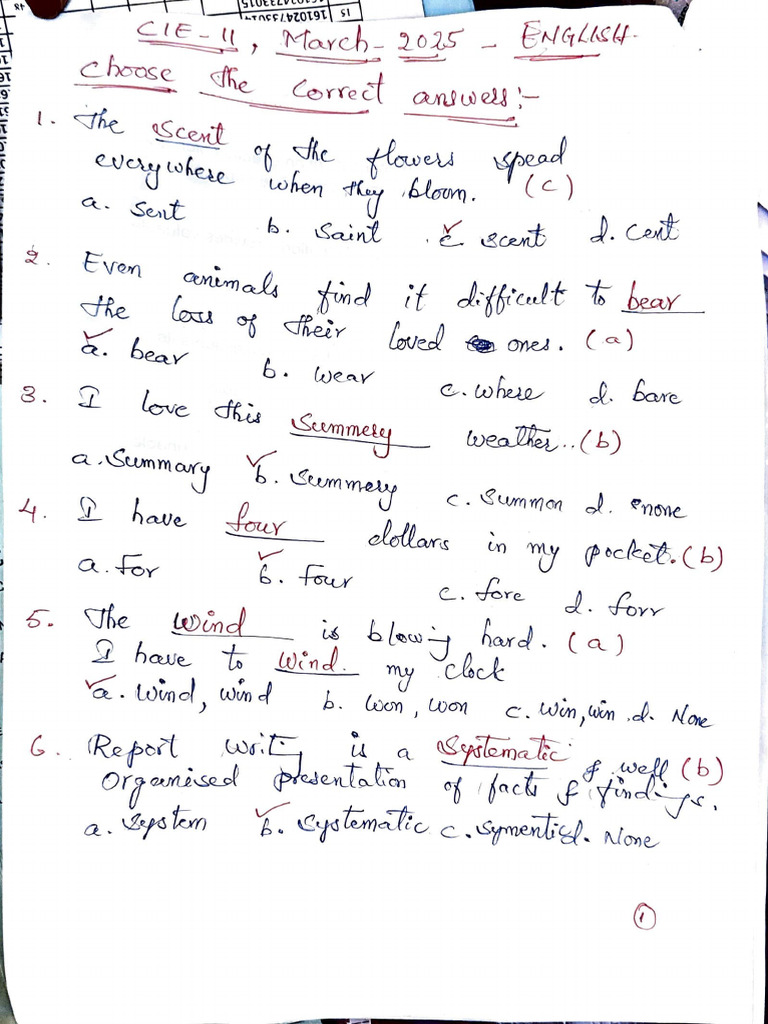 CIE-II, March-2025 - ENGLISH.
Choose the correct answers:-
1. The scent of the flowers spead
everywhere when they bloom. (c)
a. sent b. saint c. scent d. cent
2. Even animals find it difficult to bear
the loss of their loved ones. (a)
a. bear b. wear c. where d. bare
3. I love this summery weather.. (b)
a. summary b. summery c. summon d. none
4. I have four dollars in my pocket. (b)
a. for b. four c. fore d. forr
5. The wind is blowing hard. (a)
I have to wind. my clock
a. wind, wind b. won, won c. win, win d. None
6. Report writing is a systematic & well (b)
organised presentation of facts & findings.
a. system b. systematic c. symentic d. None
1